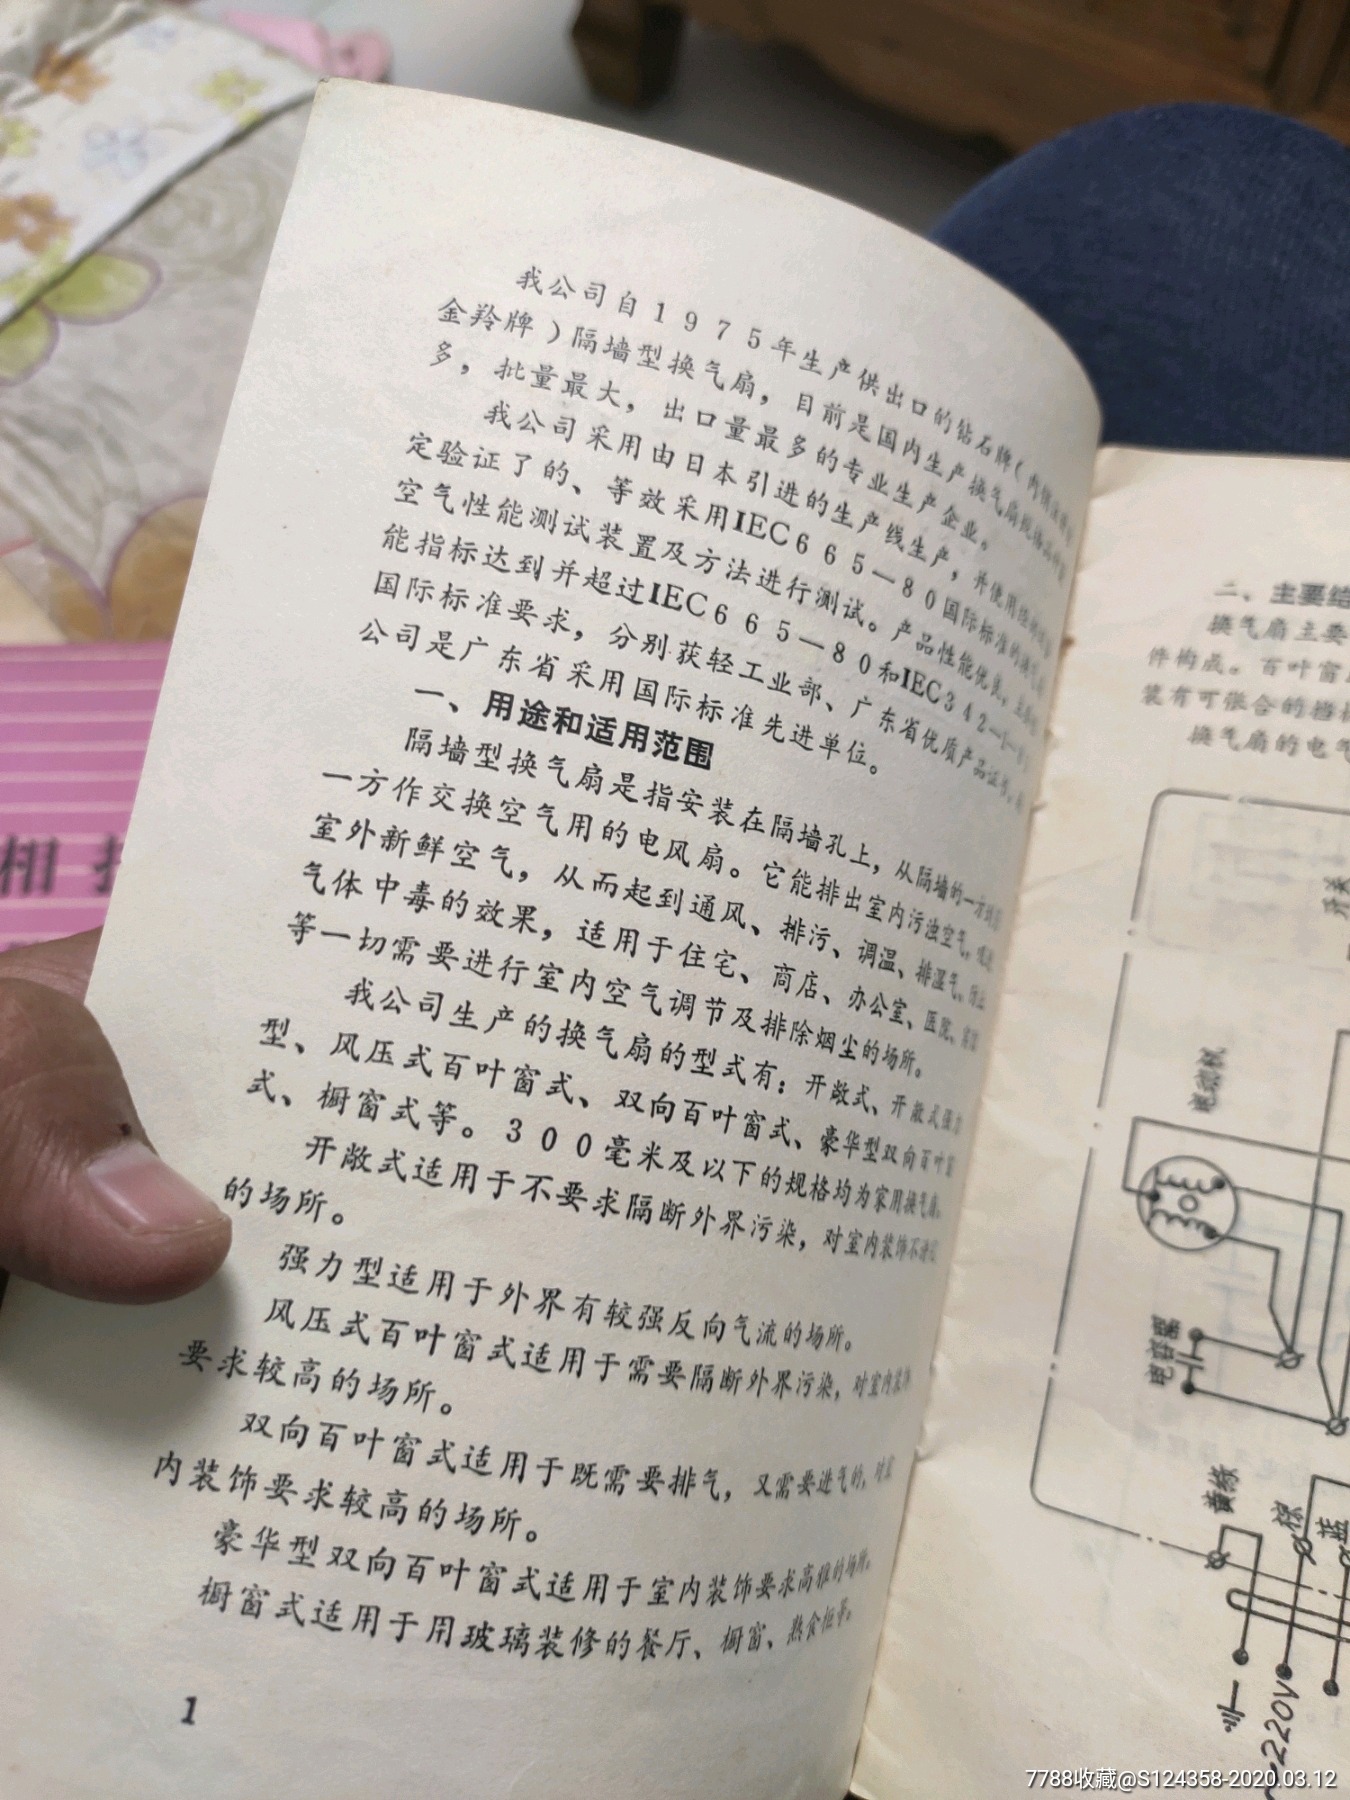 我公司自1975年生产供出口的钻石牌(内销
金羚牌)隔墙型换气扇，目前是国内生产换气扇规格品种最
多，批量最大，出口量最多的专业生产企业。
我公司采用由日本引进的生产线生产，并使用经
定验证了的、等效采用IEC665—80国际标准的换气扇
空气性能测试装置及方法进行测试。产品性能优良，主要性
能指标达到并超过IEC665—80和IEC342—1—
国际标准要求，分别获轻工业部、广东省优质产品证书，我
公司是广东省采用国际标准先进单位。
一、用途和适用范围
隔墙型换气扇是指安装在隔墙孔上，从隔墙的一方到另
一方作交换空气用的电风扇。它能排出室内污浊空气，
室外新鲜空气，从而起到通风、排污、调温、排湿气、防止
气体中毒的效果，适用于住宅、商店、办公室、医院、
等一切需要进行室内空气调节及排除烟尘的场所。
我公司生产的换气扇的型式有：开敞式、开敞式强力
型、风压式百叶窗式、双向百叶窗式、豪华型双向百叶窗
式、橱窗式等。300毫米及以下的规格均为家用换气扇。
开敞式适用于不要求隔断外界污染，对室内装饰不
的场所。
强力型适用于外界有较强反向气流的场所。
风压式百叶窗式适用于需要隔断外界污染，对室内装饰
要求较高的场所。
双向百叶窗式适用于既需要排气，又需要进气的，对室
内装饰要求较高的场所。
豪华型双向百叶窗式适用于室内装饰要求高雅的场所。
橱窗式适用于用玻璃装修的餐厅、橱窗、熟食柜等。
1
二、主要结
换气扇主要
件构成。百叶窗
装有可张合的档
换气扇的电气
开关
电动机
电容器
黄绿
棕
蓝
~220V
相
7788收藏@S124358-2020.03.12